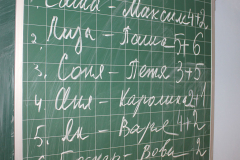 1. Саша – Максим 4+2
2. Лиза – Паша 5+6
3. Соня – Петя 3+5
4. Аня – Каролина 2+1
5. Ян – Варя 4+2